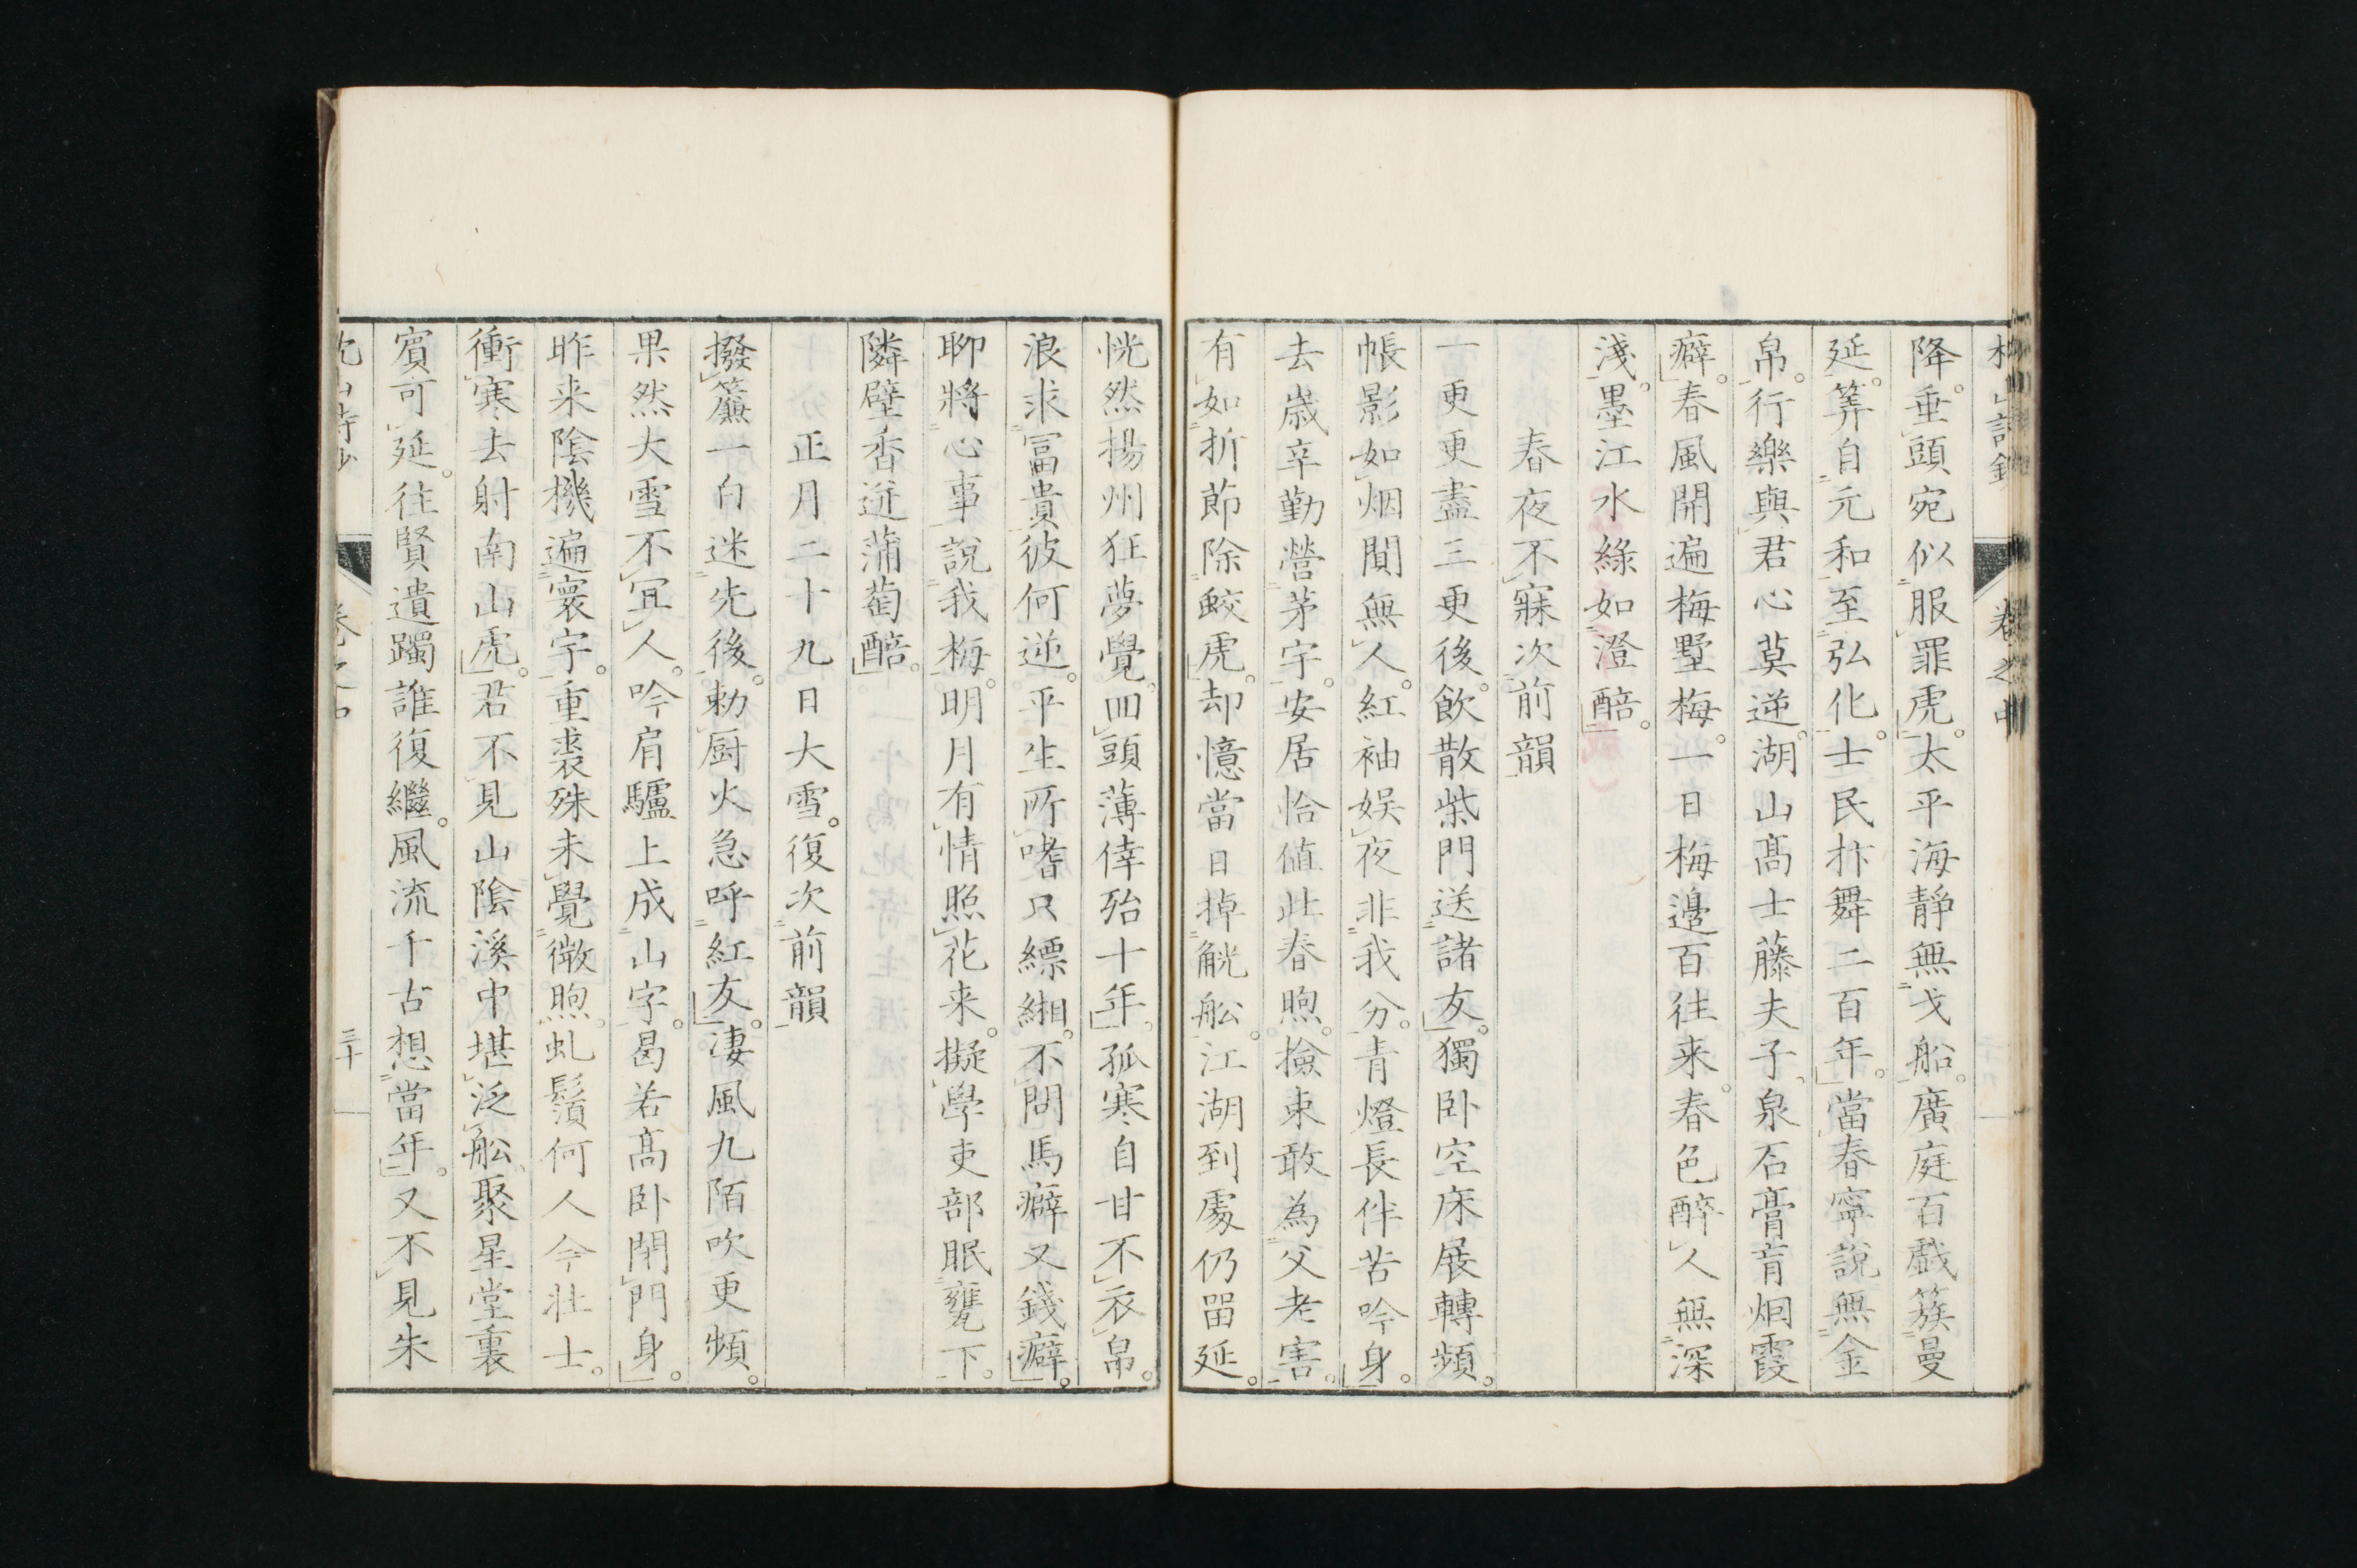 降。垂頭宛似服罪虎。太平海靜無戈船。廣庭百戲簇曼
延。筭自元和至弘化。士民抃舞二百年。當春寧說無金
帛。行樂與君心莫逆。湖山高士藤夫子。泉石膏肓烟霞
癖。春風開遍梅墅梅。一日梅邊百往来。春色醉人無深
淺。墨江水綠如澄醅。
春夜不寐次前韻
一更更盡三更後。飲散柴門送諸友。獨卧空床展轉頻。
帳影如烟聞無人。紅袖娛夜非我分。青燈長伴苦吟身。
去歳辛勤營茅宇。安居恰值此春煦。撿束敢為父老害。
有如折節除鮫虎。却憶當日掉觥舩。江湖到處仍畱延。
恍然揚州狂夢覺。回頭薄倖殆十年。孤寒自甘不衣帛。
浪求冨貴彼何逆。平生所嗜只縹緗。不問馬癖又錢癖。
聊將心事說我梅。明月有情照花来。擬學吏部眠甕下。
隣壁香逆蒲萄醅。
正月二十九日大雪。復次前韻
撥簾一白迷先後。勅厨火急呼紅友。凄風九陌吹更頻。
果然大雪不宜人。吟肩驢上成山字。曷若高卧閉門身。
昨来陰機遍寰宇。重裘殊未覺微煦。虬鬚何人今壮士。
衝寒去射南山虎。君不見山陰溪中堪泛舩。聚星堂裏
賓可延。往賢遺躅誰復繼。風流千古想當年。又不見朱
三十